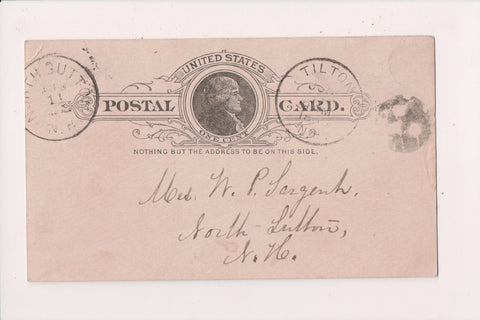 UNITED STATES
POSTAL CARD.
ONE CENT
NOTHING BUT THE ADDRESS TO BE ON THIS SIDE.
NORTH SUTTON
11
N.H.
TILTON
Mrs. W. P. Sargent.
North Sutton,
N. H.